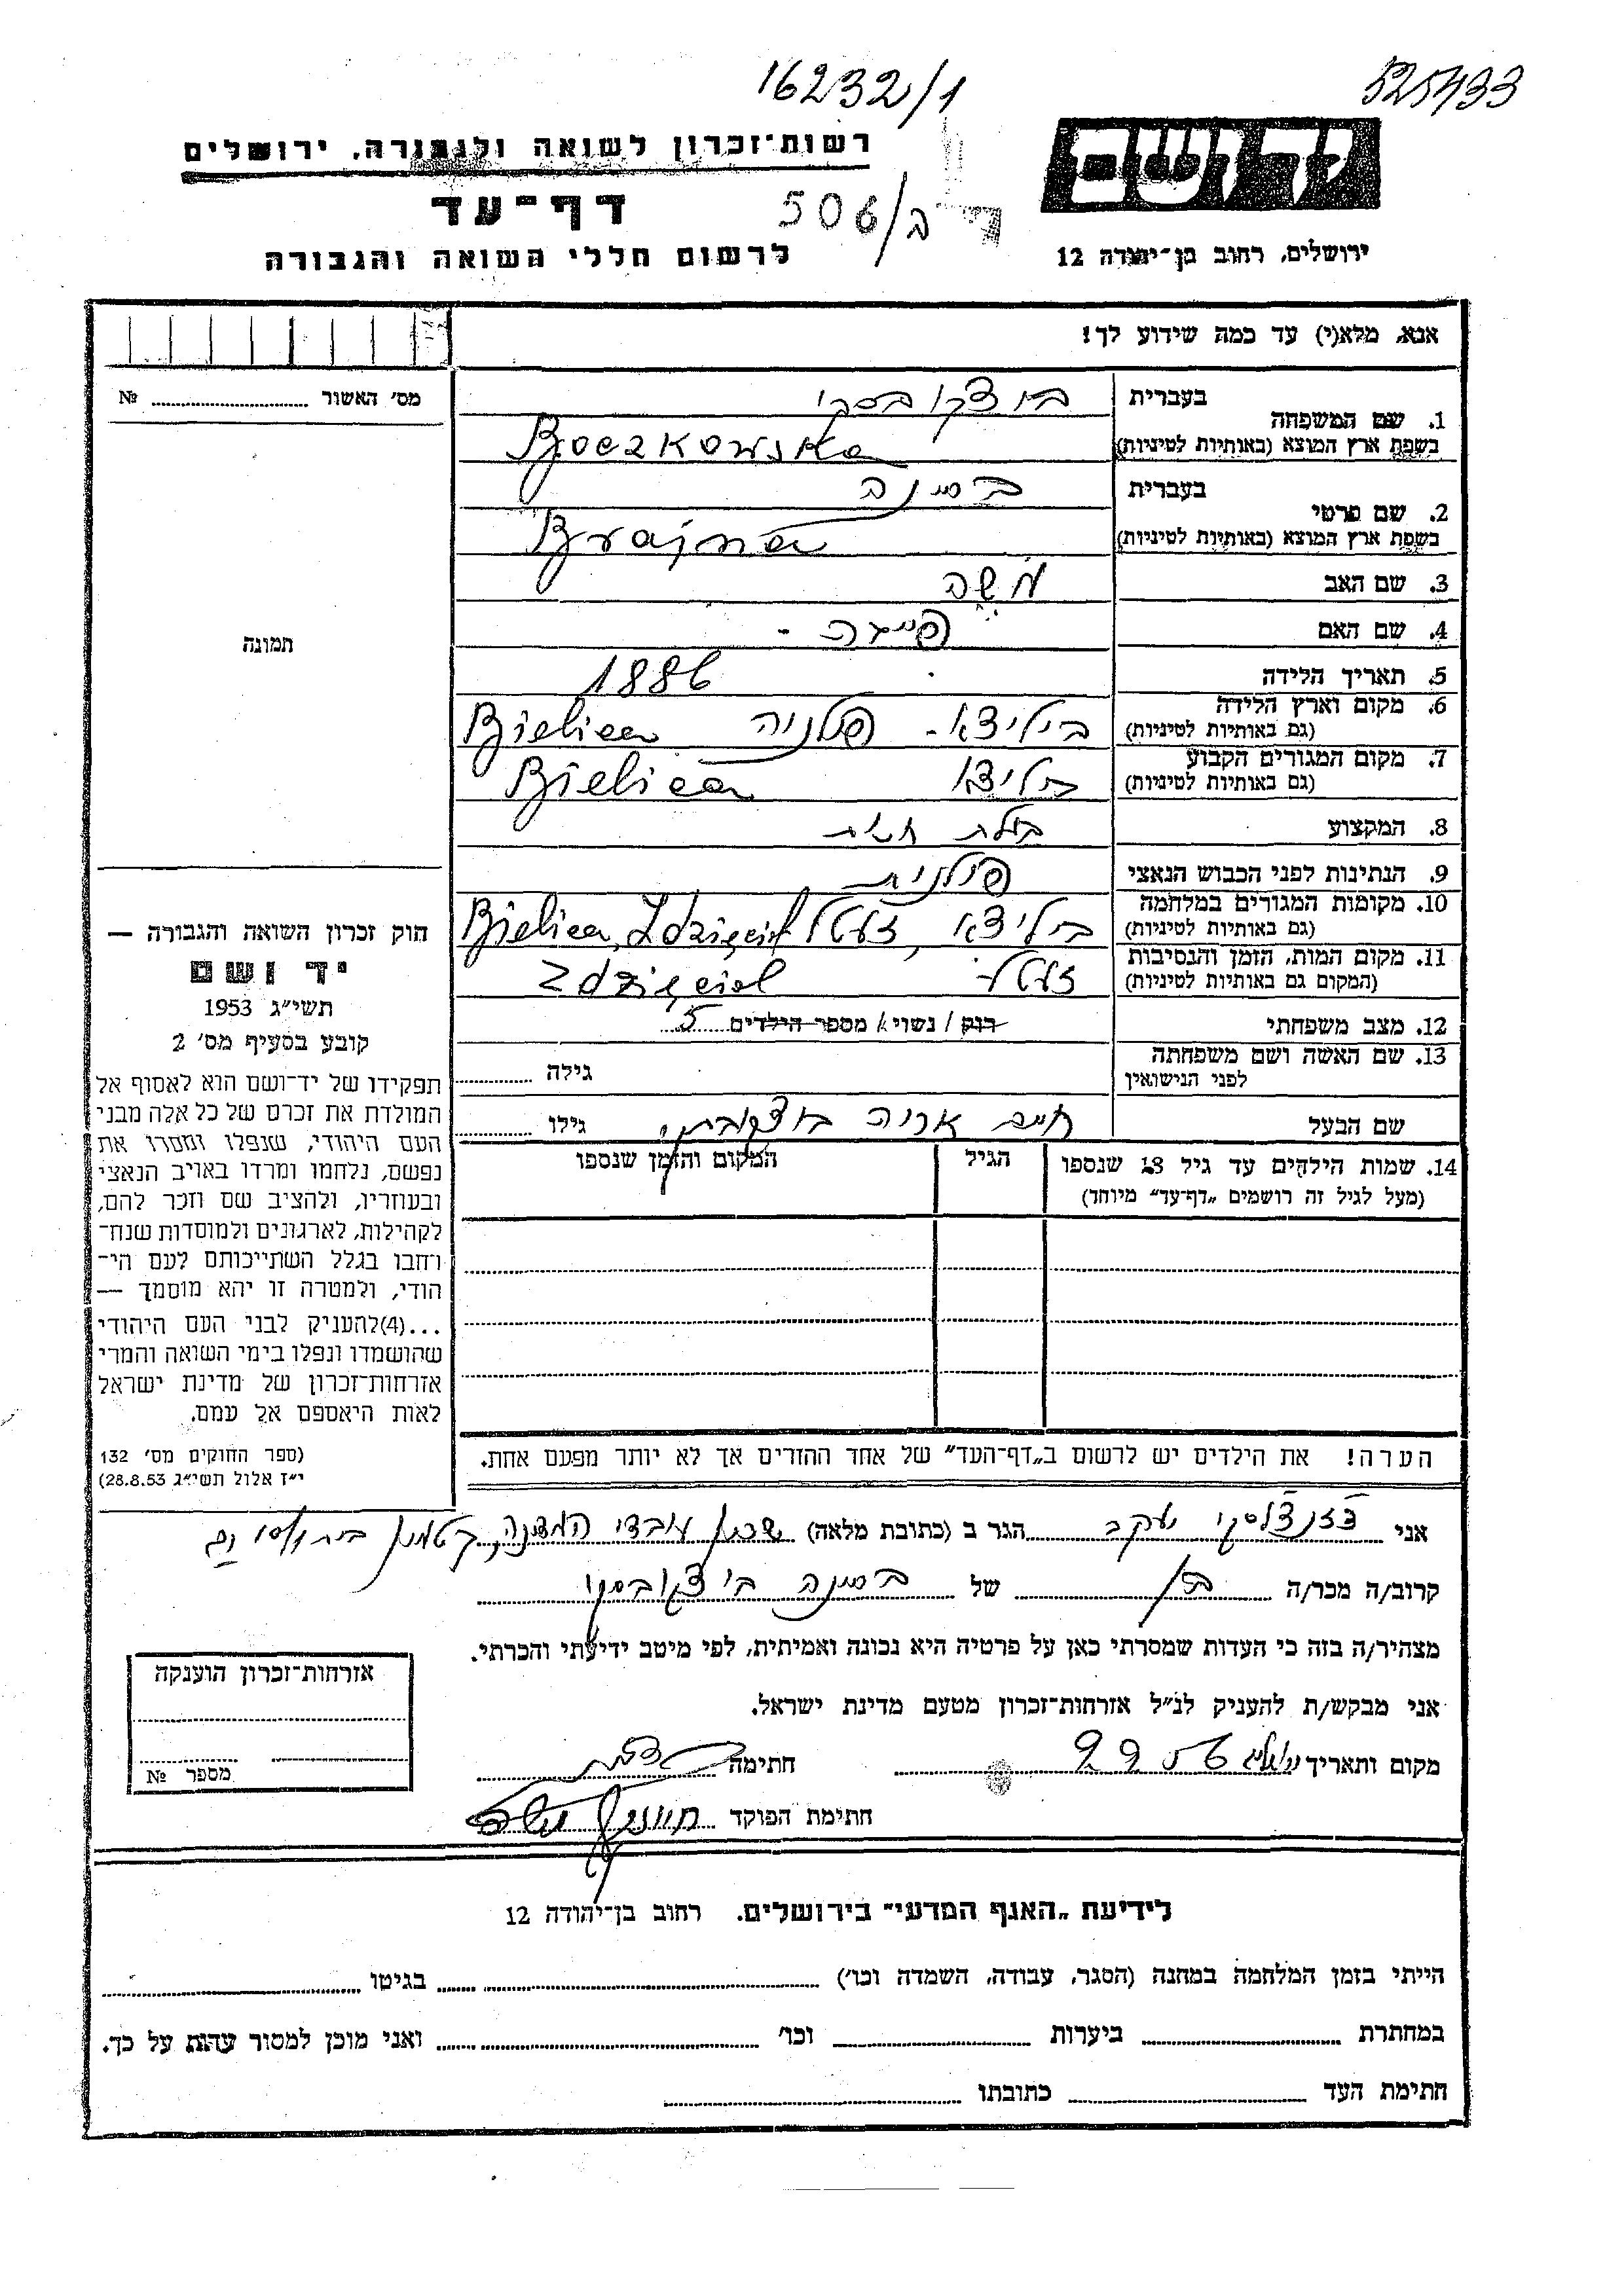 16232/1
525433
רשות־זכרון לשואה ולגבורה, ירושלים
יד ושם
דף־עד
506/ב
לרשום חללי השואה והגבורה
ירושלים, רחוב בן־יהודה 12
אנא, מלא(י) עד כמה שידוע לך!
מס׳ האשור № 
1. שם המשפחה
בעברית בוצקובסקי
בשפת ארץ המוצא (באותיות לטיניות) Boczkowska
2. שם פרטי
בעברית בריינה
בשפת ארץ המוצא (באותיות לטיניות) Brajna
3. שם האב משה
4. שם האם
תמונה
5. תאריך הלידה 1886
6. מקום וארץ הלידה ביליצא. פולניה Bielica
(גם באותיות לטיניות)
7. מקום המגורים הקבוע ביליצא Bielica
(גם באותיות לטיניות)
8. המקצוע בעלת חנות
9. הנתינות לפני הכבוש הנאצי פולנית
10. מקומות המגורים במלחמה ביליצא, זעטל Bielica, Zdzięciół
(גם באותיות לטיניות)
11. מקום המות, הזמן והנסיבות זעטל Zdzięciół
(המקום גם באותיות לטיניות)
12. מצב משפחתי רוק / נשוי / מספר הילדים 5
13. שם האשה ושם משפחתה גילה
לפני הנישואין
שם הבעל חיים אריה בוצקובסקי גילו
14. שמות הילדים עד גיל 18 שנספו הגיל המקום והזמן שנספו
(מעל לגיל זה רושמים „דף־עד״ מיוחד)
הערה! את הילדים יש לרשום ב„דף־העד״ של אחד ההורים אך לא יותר מפעם אחת.
חוק זכרון השואה והגבורה —
יד ושם
תשי״ג 1953
קובע בסעיף מס׳ 2
תפקידו של יד־ושם הוא לאסוף אל
המולדת את זכרם של כל אלה מבני
העם היהודי, שנפלו ומסרו את
נפשם, נלחמו ומרדו באויב הנאצי
ובעוזריו, ולהציב שם וזכר להם,
לקהילות, לארגונים ולמוסדות שנח־
רחבו בגלל השתייכותם לעם הי־
הודי, ולמטרה זו יהא מוסמך —
...(4)להעניק לבני העם היהודי
שהושמדו ונפלו בימי השואה והמרי
אזרחות־זכרון של מדינת ישראל
לאות היאספם אל עמם.
(ספר החוקים מס׳ 132
י״ז אלול תשי״ג 28.8.53)
אני יעקב הגר ב (כתובת מלאה) שכון עובדי המדינה, קטמון
קרוב/ה מכר/ה בן של בריינה בוצקובסקי
מצהיר/ה בזה כי העדות שמסרתי כאן על פרטיה היא נכונה ואמיתית, לפי מיטב ידיעתי והכרתי.
אני מבקש/ת להעניק לנ״ל אזרחות־זכרון מטעם מדינת ישראל.
מקום ותאריך חתימה
חתימת הפוקד
אזרחות־זכרון הוענקה
מספר №
לידיעת „האגף המדעי״ בירושלים. רחוב בן־יהודה 12
הייתי בזמן המלחמה במחנה (הסגר, עבודה, השמדה וכו׳) בגיטו
במחתרת ביערות וכו׳ ואני מוכן למסור עדות על כך.
חתימת העד כתובתו